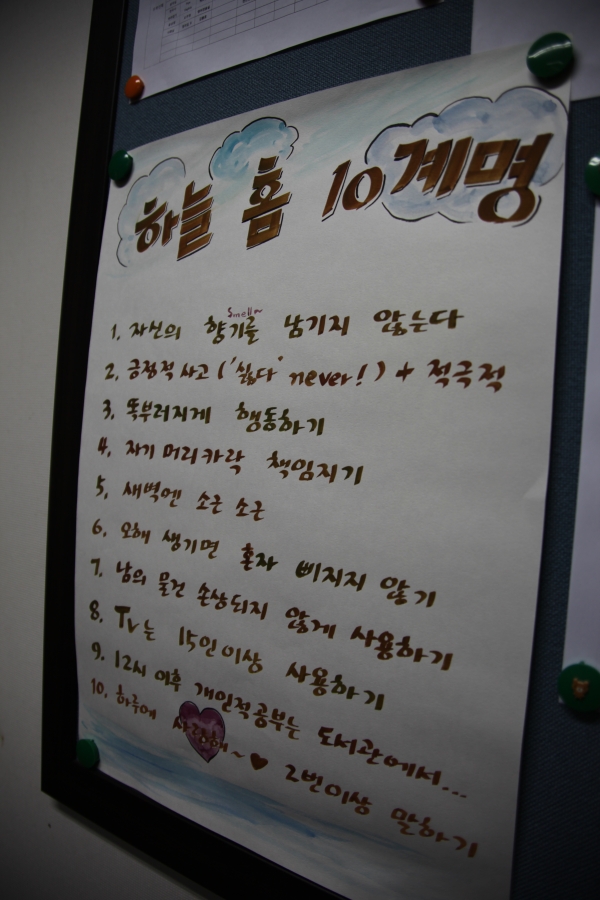 하늘 홈 10계명
Smell~
1. 자신의 향기를 남기지 않는다
2. 긍정적 사고 ('싫다' never!) + 적극적
3. 똑부러지게 행동하기
4. 자기 머리카락 책임지기
5. 새벽엔 소근 소근
6. 오해 생기면 혼자 삐지지 않기
7. 남의 물건 손상되지 않게 사용하기
8. Tv는 15인이상 사용하기
9. 12시 이후 개인적공부는 도서관에서...
10. 하루에 사랑해~♥ 2번이상 말하기